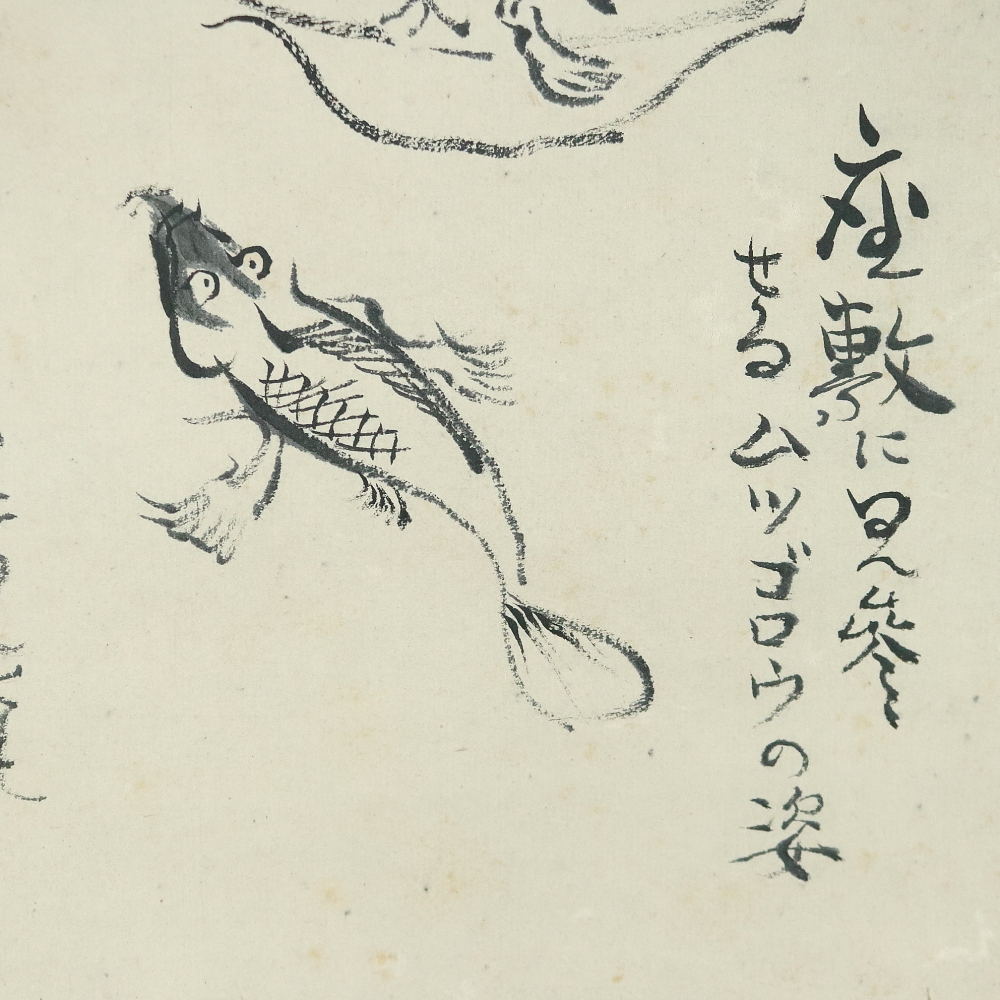 座敷に見参
せるムツゴロウの姿